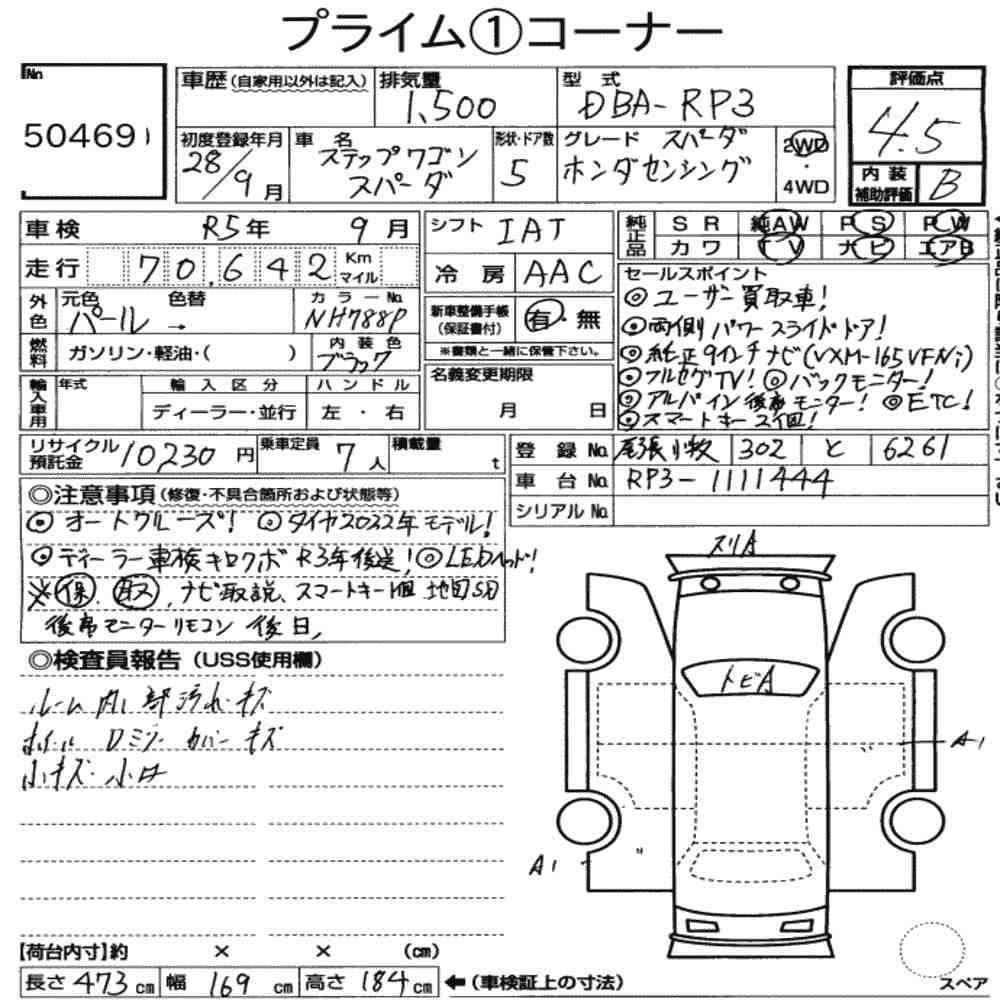 プライム①コーナー
No
50469
車歴 (自家用以外は記入)
排気量
1,500
型式
DBA-RP3
評価点
4.5
内装補助評価 B
初度登録年月
28/9月
車名
ステップワゴン
スパーダ
形状・ドア数
5
グレード スパーダ
ホンダセンシング
2WD
・
4WD
車検 R5年 9月
シフト IAT
純正品 SR 純AW PS PW
カワ TV ナビ エアB
走行 70,642 Km マイル
冷房 AAC
セールスポイント
◎ユーザー買取車!
◎両側パワースライドドア!
◎純正9インチナビ(VXM-165VFNi)
◎フルセグTV! ◎バックモニター!
◎アルパイン後席モニター! ◎ETC!
◎スマートキー2個!
外色 元色 色替 カラーNo.
パール → NH788P
新車整備手帳
(保証書付)
有・無
※書類と一緒に保管下さい。
燃料 ガソリン・軽油・( )
内装色
ブラック
名義変更期限
月 日
輸入車用 年式 輸入区分 ハンドル
ディーラー・並行 左・右
リサイクル預託金 10230円
乗車定員 7人
積載量 t
登録No. 尾張小牧 302 と 6261
車台No. RP3-1111444
シリアルNo.
◎注意事項(修復・不具合箇所および状態等)
◎オートクルーズ! ◎タイヤ2022年モデル!
◎ディーラー車検キロクボR3年後送! ◎LEDヘッド!
※保、取ス、ナビ取説、スマートキー1個 地図SD
後席モニターリモコン後日,
◎検査員報告(USS使用欄)
ルーム内 部汚れ キズ
ホイール ロミラーカバー キズ
小キズ 小凹
スリA
トビA
A1
A1
【荷台内寸】約 × × (cm)
長さ 473cm 幅 169cm 高さ 184cm ←(車検証上の寸法)
スペア